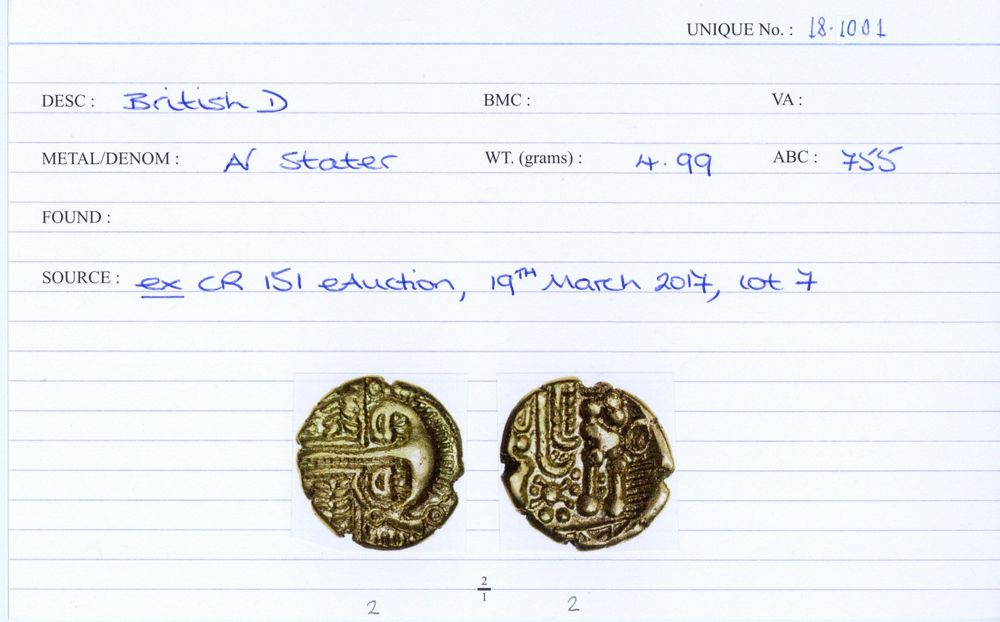 UNIQUE No. : 18.1001
DESC : British D BMC : VA :
METAL/DENOM : N Stater WT. (grams) : 4.99 ABC : 755
FOUND :
SOURCE : ex CR 151 eAuction, 19TH March 2017, lot 7
2
1
2 2